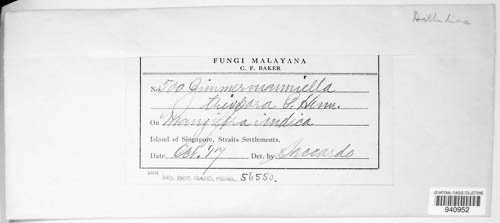 FUNGI MALAYANA
C. F. BAKER
No. 500 Zimmermanniella
trispora P. Henn.
On Mangifera indica
Island of Singapore, Straits Settlements.
Date Oct. '17 Det. by Saccardo
MO. BOT. GARD. HERB. 56550.
US NATIONAL FUNGUS COLLECTIONS
940952